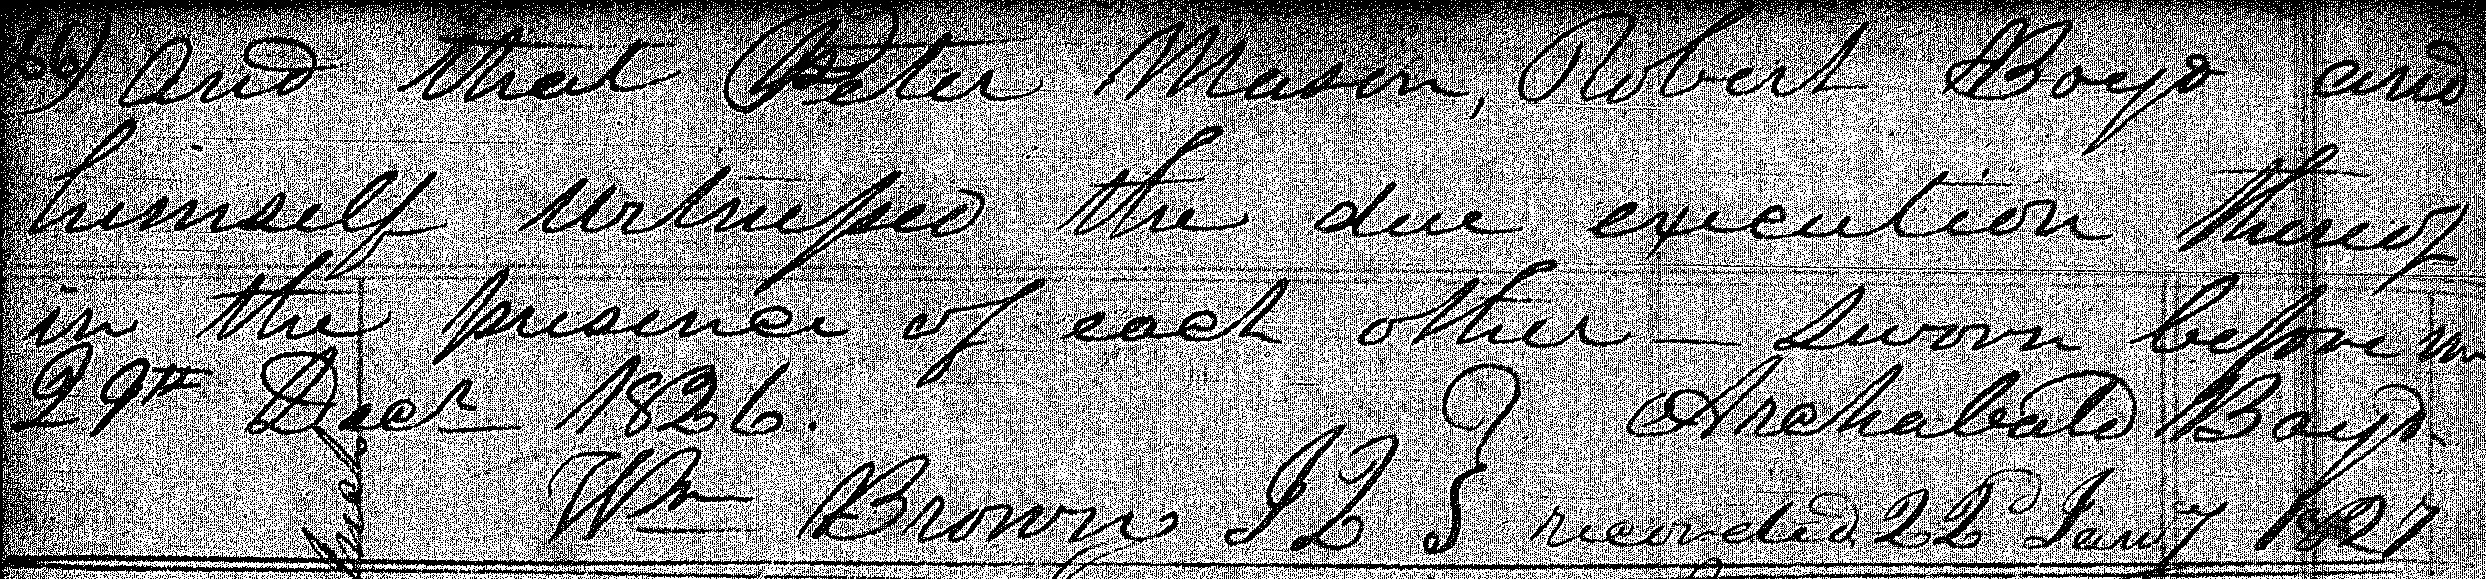 66) And that Peter Mason, Robert Boyd and
himself witnessed the due execution thereof
in the presence of each other — Sworn before me
29th Decr 1826. } Archabald Boyd
Wm Brown J P } recorded 22d Jany 1827